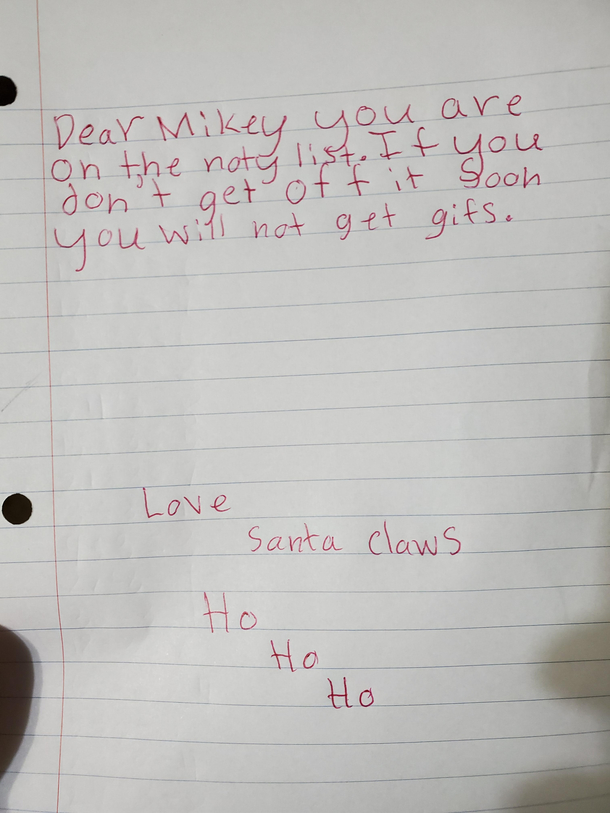 Dear Mikey you are
on the noty list. If you
don't get off it soon
you will not get gifs.
Love
Santa claws
Ho
Ho
Ho